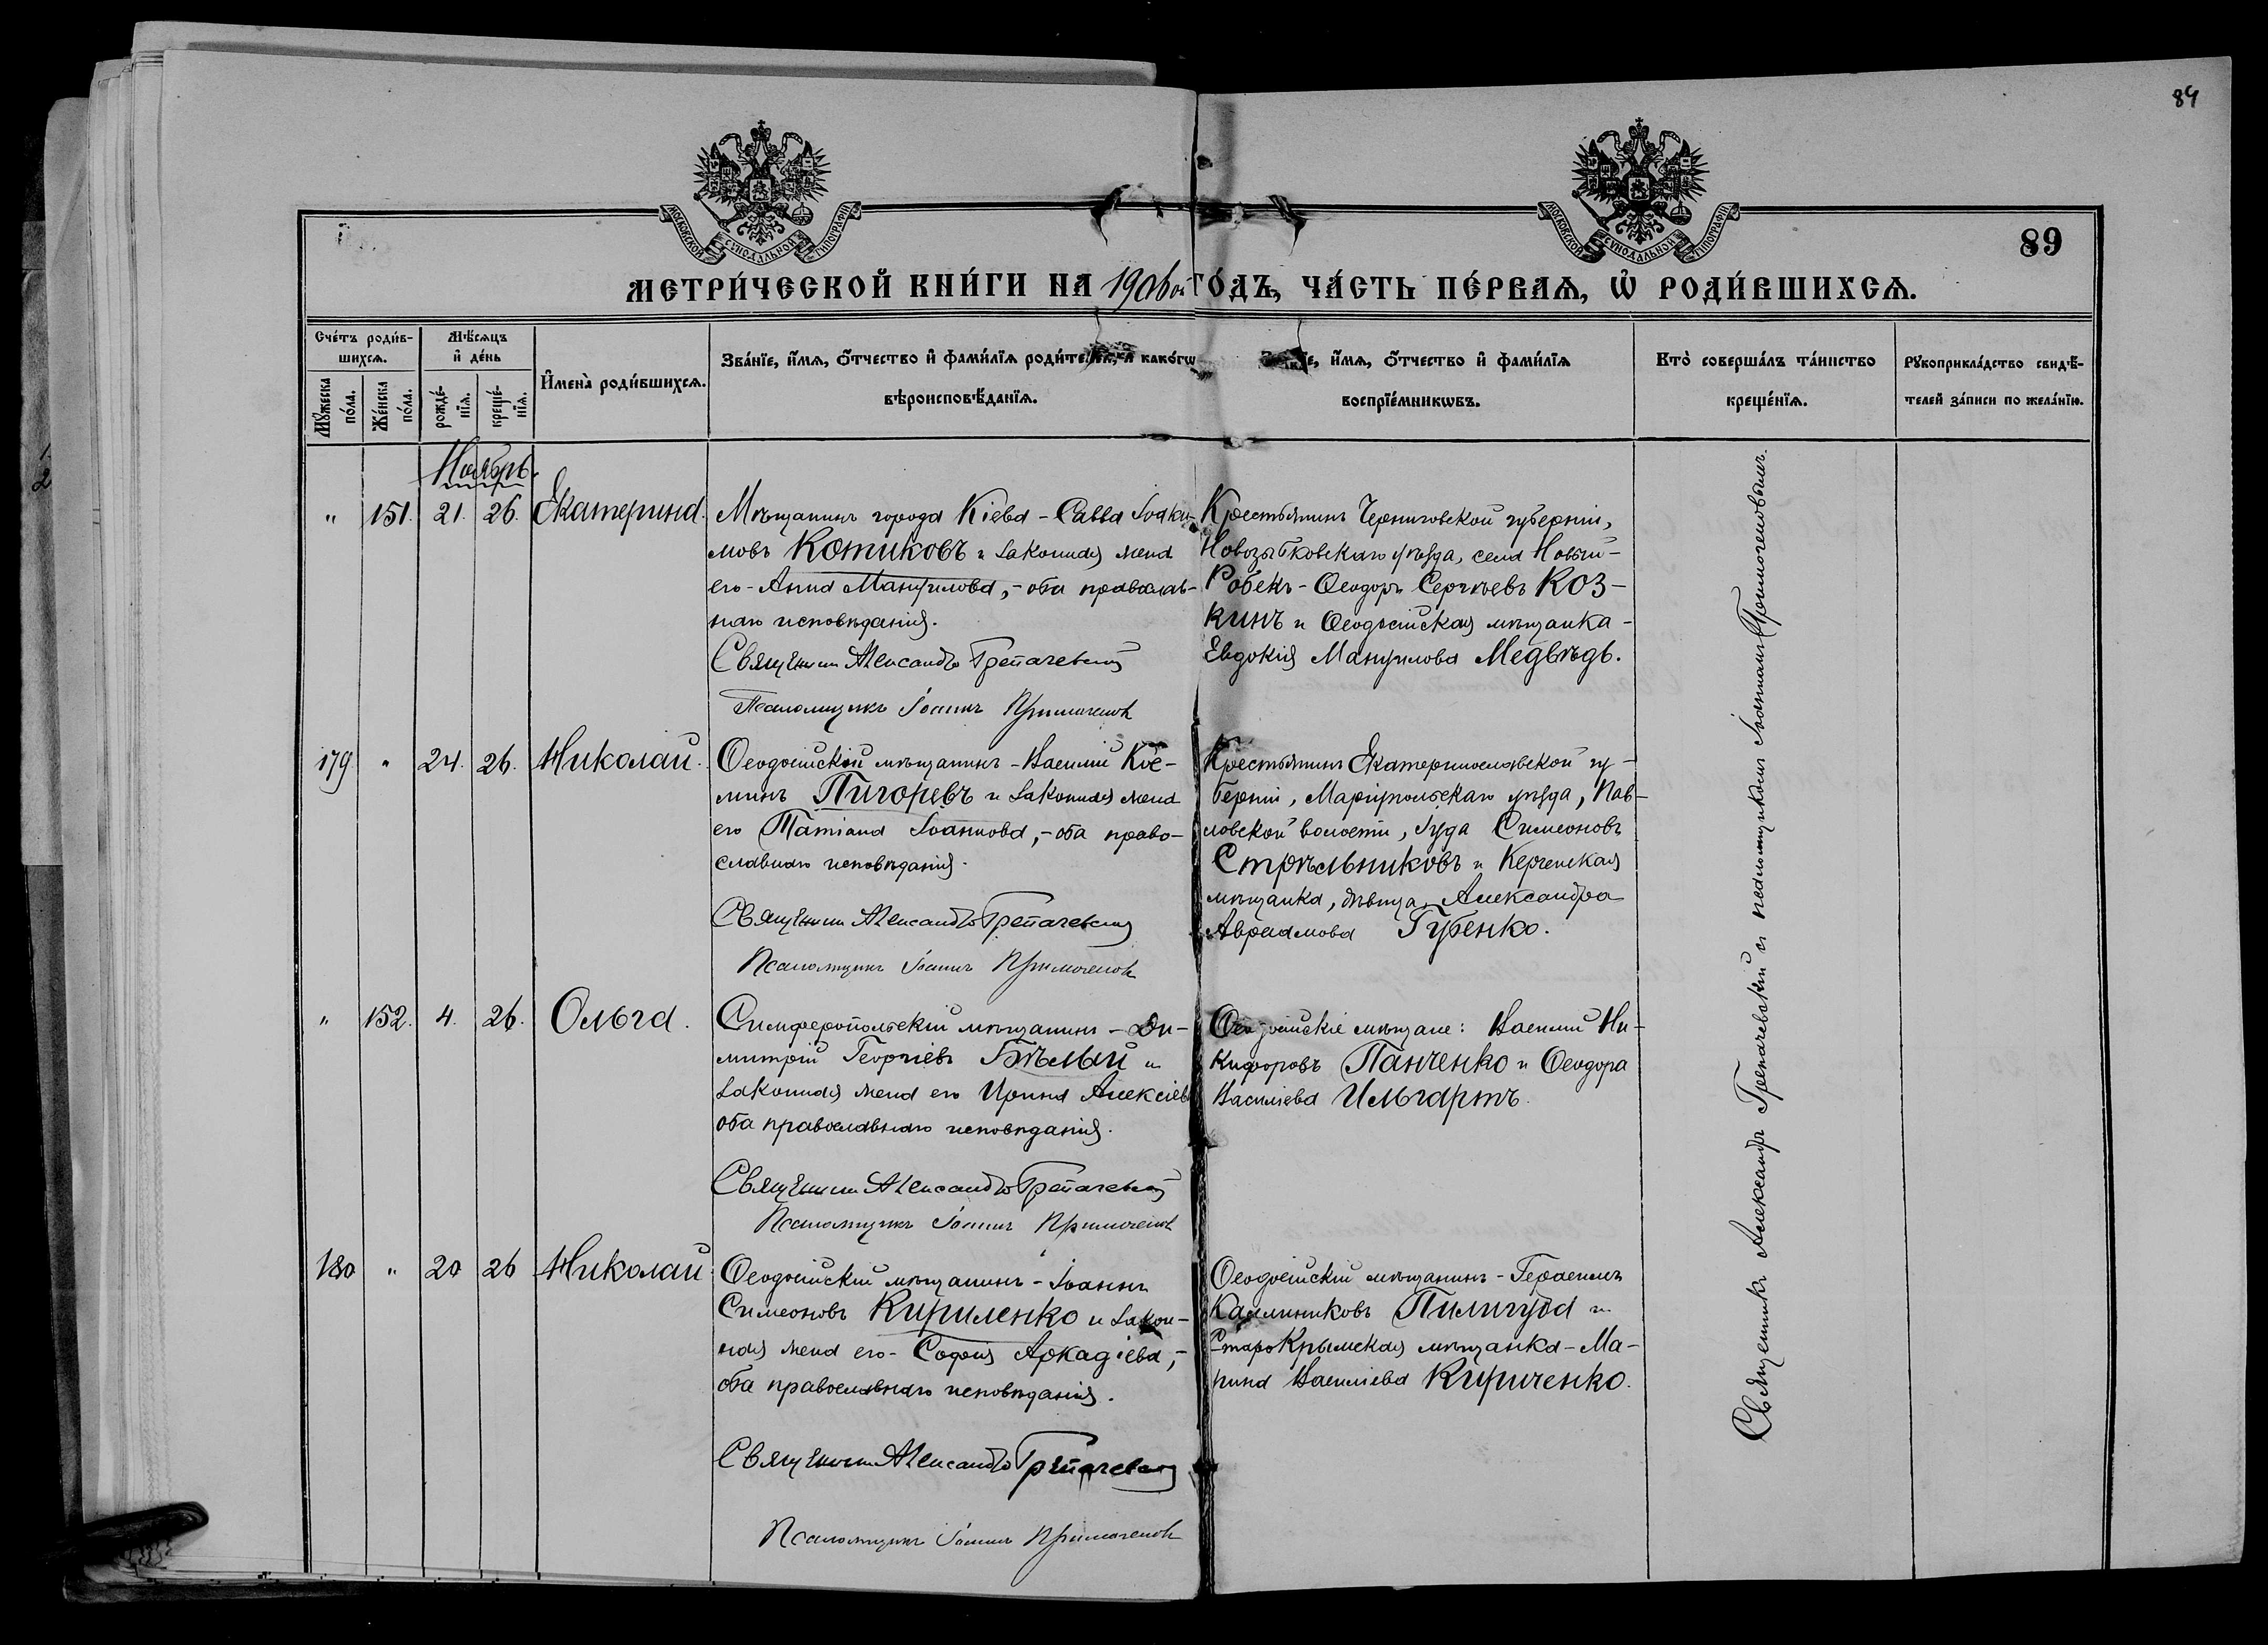 84
МОСКОВСКОЙ СѴНОДАЛЬНОЙ ТИПОГРАФІИ
МОСКОВСКОЙ СѴНОДАЛЬНОЙ ТИПОГРАФІИ
89
МЕТРИ́ЧЕСКОЙ КНИ́ГИ НА 1906ой ГО́ДЪ, ЧА́СТЬ ПЕ́РВАѦ, Ѡ҆ РОДИ́ВШИХСѦ.
Сче́тъ роди́в-
шихсѧ.
Мꙋ́жеска по́ла.
Же́нска по́ла.
Мѣ́сѧцъ
и҆ де́нь
рожде́-
нїѧ.
креще́-
нїѧ.
И҆мена̀ роди́вшихсѧ.
Зва́нїе, и҆́мѧ, ѻ҆́тчество и҆ фами́лїѧ роди́телей, и҆ како́гѡ
вѣроисповѣ́данїѧ.
Зва́нїе, и҆́мѧ, ѻ҆́тчество и҆ фами́лїѧ
воспрїе́мникѡвъ.
Кто̀ соверша́лъ та́инство
креще́нїѧ.
Рꙋкоприкла́дство свидѣ́-
телей за́писи по жела́нїю.
Ноябрь.
" 151. 21. 26. Екатерина.
Мѣщанинъ города Кіева - Савва Іоаки-
мовъ Котиковъ и законная жена
его - Анна Мануилова, - оба православ-
наго исповѣданія.
Священник Александръ Грепачевский
Псаломщикъ Іоаннъ Примогенов
Крестьянинъ Черниговской губерніи,
Новозыбковскаго уѣзда, села Новый-
Робекъ - Ѳеодоръ Сергѣевъ Коз-
кинъ и Ѳеодосійская мѣщанка -
Евдокія Мануилова Медвѣдь.
179 " 24. 26. Николай.
Ѳеодосійскій мѣщанинъ - Василій Кос-
минъ Пигоревъ и законная жена
его Татіана Іоаннова, - оба право-
славнаго исповѣданія.
Священник Александръ Грепачевский
Псаломщикъ Іоаннъ Примогенов
Крестьянинъ Екатеринославской гу-
берніи, Маріупольскаго уѣзда, Пав-
ловской волости, Іуда Симеоновъ
Стрѣльниковъ и Керченская
мѣщанка, дѣвица, Александра
Авраамова Губенко.
" 152. 4. 26. Ольга.
Симферопольскій мѣщанинъ - Ди-
митрій Георгіевъ Бѣлый и
законная жена его Ирина Алексіев
оба православнаго исповѣданія.
Священник Александръ Грепачевский
Псаломщикъ Іоаннъ Примогенов
Ѳеодосійскіе мѣщане: Василій Ни-
кифоровъ Панченко и Ѳеодора
Василіева Ильгартъ.
180 " 20 26 Николай
Ѳеодосійскій мѣщанинъ - Іоаннъ
Симеоновъ Кириленко и закон-
ная жена его - Софія Аркадіева, -
оба православнаго исповѣданія.
Священник Александръ Грепачевский
Псаломщикъ Іоаннъ Примогенов
Ѳеодосійскій мѣщанинъ - Герасимъ
Каллиниковъ Пилигуда и
Старокрымская мѣщанка - Ма-
рина Василіева Кириченко.
Священникъ Александръ Грепачевскій съ псаломщикомъ Іоанномъ Примогеновымъ.